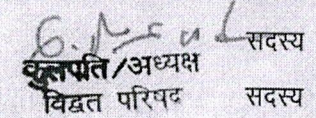 सदस्य
कुलपति/अध्यक्ष
विद्वत परिषद सदस्य